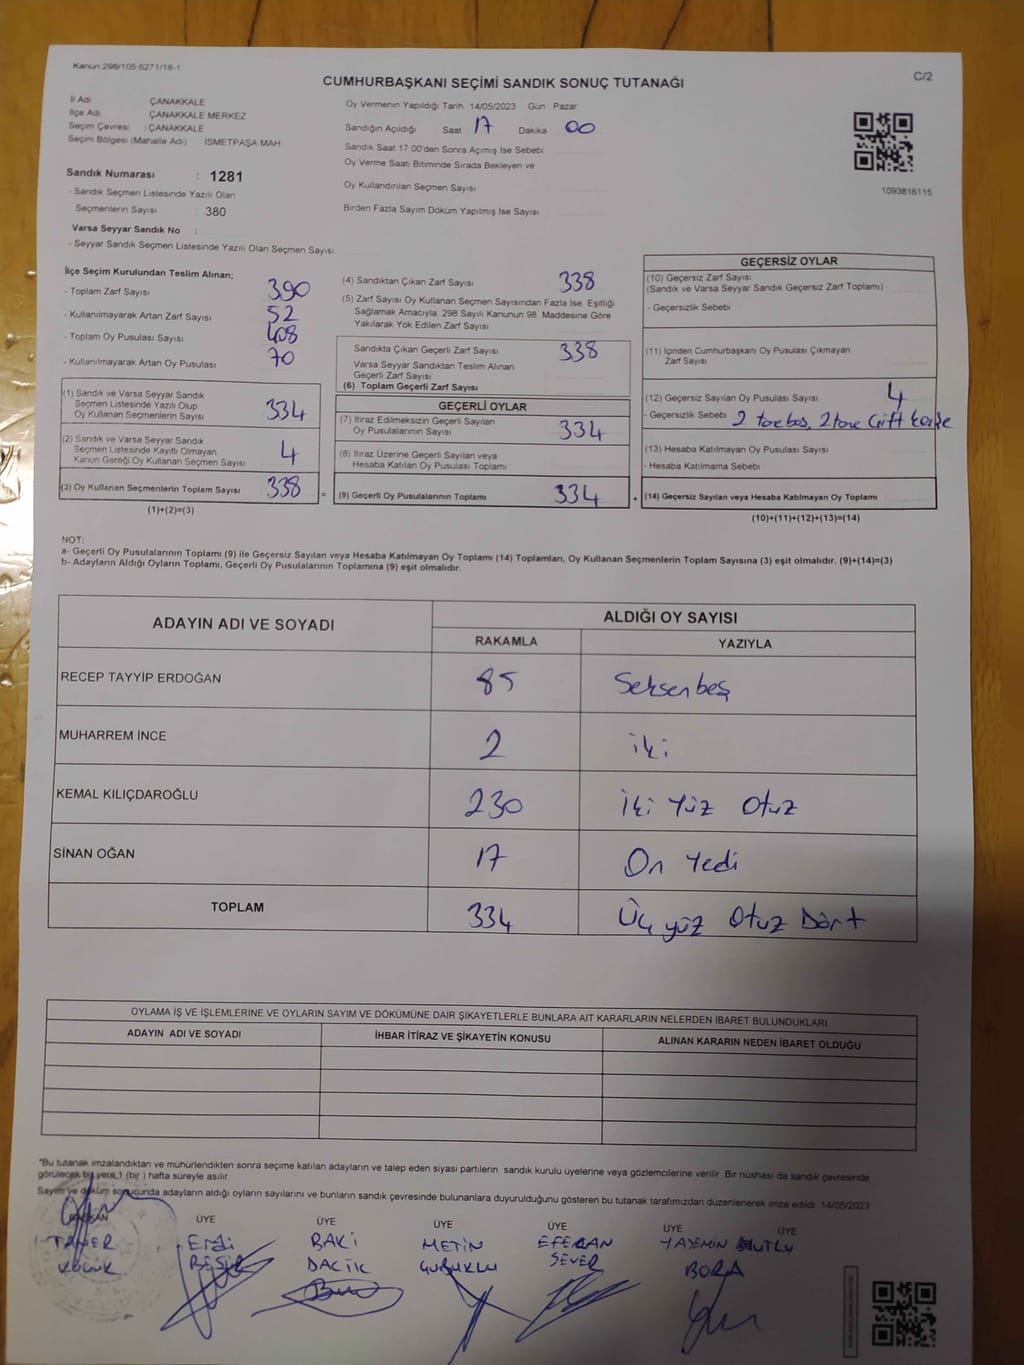 Kanun:298/105 6271/18-1
C/2
CUMHURBAŞKANI SEÇİMİ SANDIK SONUÇ TUTANAĞI
İl Adı ÇANAKKALE
İlçe Adı ÇANAKKALE MERKEZ
Seçim Çevresi : ÇANAKKALE
Seçim Bölgesi (Mahalle Adı) ISMETPAŞA MAH
Sandık Numarası : 1281
- Sandık Seçmen Listesinde Yazılı Olan
Seçmenlerin Sayısı : 380
Varsa Seyyar Sandık No :
- Seyyar Sandık Seçmen Listesinde Yazılı Olan Seçmen Sayısı
Oy Vermenin Yapıldığı Tarih 14/05/2023 Gün Pazar
Sandığın Açıldığı Saat 17 Dakika 00
Sandık Saat 17:00'den Sonra Açımış İse Sebebi
Oy Verme Saati Bitiminde Sırada Bekleyen ve
Oy Kullandırılan Seçmen Sayısı
Birden Fazla Sayım Döküm Yapılmış İse Sayısı
1093816115
İlçe Seçim Kurulundan Teslim Alınan;
- Toplam Zarf Sayısı 390
- Kullanılmayarak Artan Zarf Sayısı 52
- Toplam Oy Pusulası Sayısı 408
- Kullanılmayarak Artan Oy Pusulası 70
(1) Sandık ve Varsa Seyyar Sandık
Seçmen Listesinde Yazılı Olup
Oy Kullanan Seçmenlerin Sayısı 334
(2) Sandık ve Varsa Seyyar Sandık
Seçmen Listesinde Kayıtlı Olmayan
Kanun Gereği Oy Kullanan Seçmen Sayısı 4
(3) Oy Kullanan Seçmenlerin Toplam Sayısı 338 =
(1)+(2)=(3)
(4) Sandıktan Çıkan Zarf Sayısı 338
(5) Zarf Sayısı Oy Kullanan Seçmen Sayısından Fazla İse, Eşitliği
Sağlamak Amacıyla, 298 Sayılı Kanunun 98. Maddesine Göre
Yakılarak Yok Edilen Zarf Sayısı
Sandıkta Çıkan Geçerli Zarf Sayısı 338
Varsa Seyyar Sandıktan Teslim Alınan
Geçerli Zarf Sayısı
(6) Toplam Geçerli Zarf Sayısı
GEÇERLİ OYLAR
(7) İtiraz Edilmeksizin Geçerli Sayılan
Oy Pusulalarının Sayısı 334
(8) İtiraz Üzerine Geçerli Sayılan veya
Hesaba Katılan Oy Pusulası Toplamı
(9) Geçerli Oy Pusulalarının Toplamı 334 +
GEÇERSİZ OYLAR
(10) Geçersiz Zarf Sayısı
(Sandık ve Varsa Seyyar Sandık Geçersiz Zarf Toplamı)
- Geçersizlik Sebebi
(11) İçinden Cumhurbaşkanı Oy Pusulası Çıkmayan
Zarf Sayısı
(12) Geçersiz Sayılan Oy Pusulası Sayısı 4
- Geçersizlik Sebebi 2 tane boş, 2 tane Çift kaşe
(13) Hesaba Katılmayan Oy Pusulası Sayısı
- Hesaba Katılmama Sebebi
(14) Geçersiz Sayılan veya Hesaba Katılmayan Oy Toplamı
(10)+(11)+(12)+(13)=(14)
NOT:
a- Geçerli Oy Pusulalarının Toplamı (9) ile Geçersiz Sayılan veya Hesaba Katılmayan Oy Toplamı (14) Toplamları, Oy Kullanan Seçmenlerin Toplam Sayısına (3) eşit olmalıdır. (9)+(14)=(3)
b- Adayların Aldığı Oyların Toplamı, Geçerli Oy Pusulalarının Toplamına (9) eşit olmalıdır.
ADAYIN ADI VE SOYADI
ALDIĞI OY SAYISI
RAKAMLA YAZIYLA
RECEP TAYYİP ERDOĞAN 85 Seksenbeş
MUHARREM İNCE 2 iki
KEMAL KILIÇDAROĞLU 230 İki Yüz Otuz
SİNAN OĞAN 17 On Yedi
TOPLAM 334 Üç yüz Otuz Dört
OYLAMA İŞ VE İŞLEMLERİNE VE OYLARIN SAYIM VE DÖKÜMÜNE DAİR ŞİKAYETLERLE BUNLARA AİT KARARLARIN NELERDEN İBARET BULUNDUKLARI
ADAYIN ADI VE SOYADI İHBAR İTİRAZ VE ŞİKAYETİN KONUSU ALINAN KARARIN NEDEN İBARET OLDUĞU
*Bu tutanak imzalandıktan ve mühürlendikten sonra seçime katılan adayların ve talep eden siyasi partilerin sandık kurulu üyelerine veya gözlemcilerine verilir. Bir nüshası da sandık çevresinde
görülecek bir yere 1 (bir) hafta süreyle asılır
Sayım ve döküm sonucunda adayların aldığı oyların sayılarını ve bunların sandık çevresinde bulunanlara duyurulduğunu gösteren bu tutanak tarafımızdan düzenlenerek imza edildi. 14/05/2023
BAŞKAN ÜYE ÜYE ÜYE ÜYE ÜYE ÜYE
TANER Erdi BAKİ METİN EFECAN YASEMİN MUTLU
KÜÇÜK BEŞİR DACIK ÇUBUKLU SEVER BORA